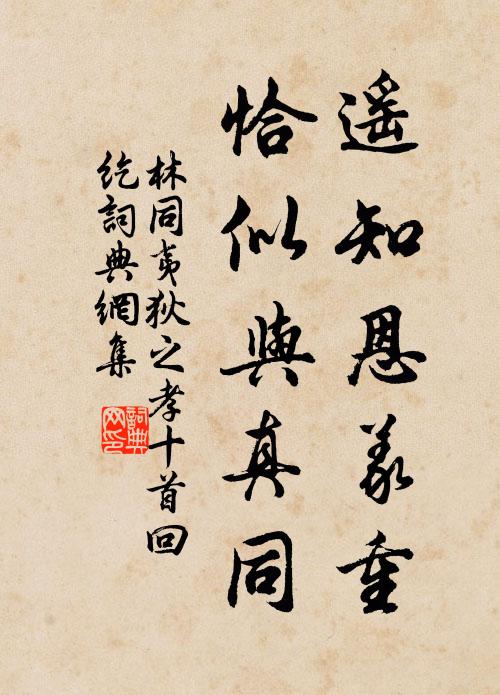 遥知恩義重
恰似與真同
林同夷狄之孝十首回
紇詞典網集
詞典
网印